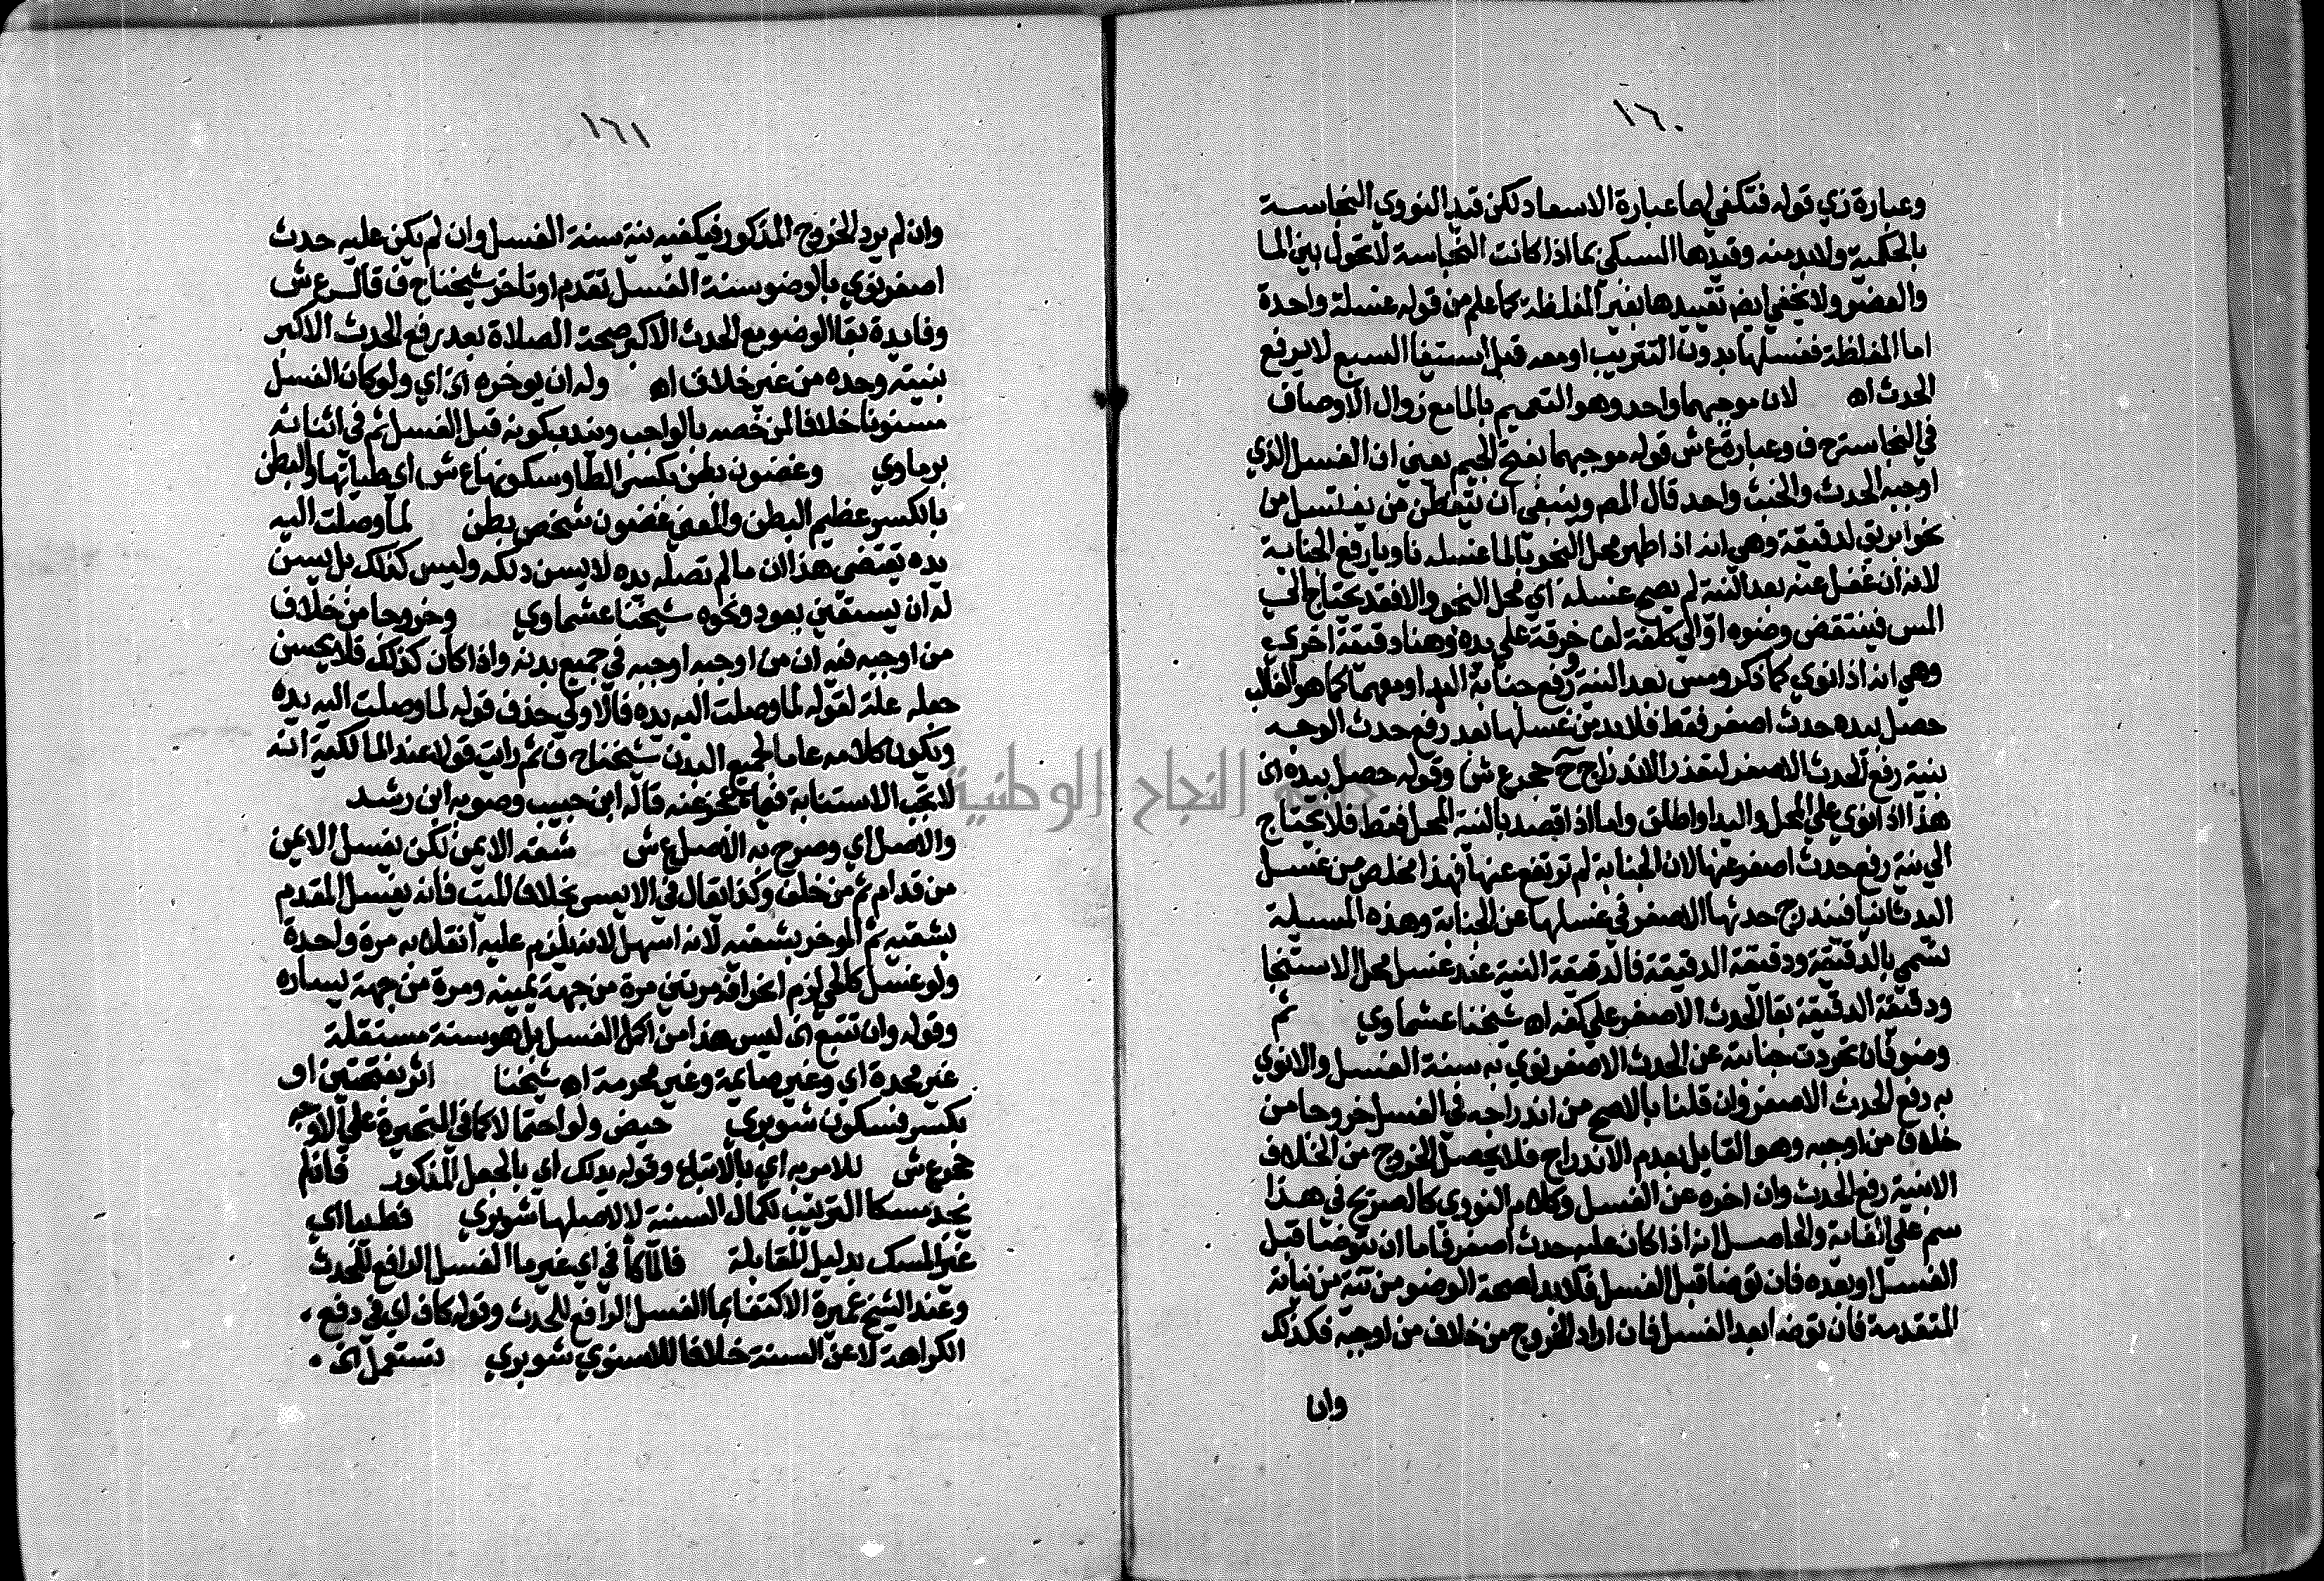 ١٦٠
وعبارة زي قوله فتكفي لهما عبارة الاسعاد لكن قيد النووي النجاسة
بالحكمية ولابد منه وقيدها السبكي بما اذا كانت النجاسة لا تحول بين الما
والعضو ولا يخفي ايض تقييدها بغير المغلظة كما علم من قوله غسلة واحدة
اما المغلظة فغسلها بدون التتريب او معه قبل استيفا السبع لا يرفع
الحدث اه لان موجبهما واحد وهو التعميم بالما مع زوال الاوصاف
في النجاسة ح ف وعبارة ع ش قوله موجبهما بفتح الجيم يعني ان الغسل الذي
اوجبه الحدث والخبث واحد قال المص وينبغي ان يتفطن من يغتسل من
نحو ابريق لدقيقة وهي انه اذا طهر محل النجو بالما غسله ناويا رفع الجنابة
لانه ان غفل عنه بعد النية لم يصح غسله اي محل النجو والا فقد يحتاج الي
المس فينتقض وضوه او الي كلفة لف خرقة علي يده وهنا دقيقة اخري
وهي انه اذا نوي كما ذكر ومس بعد النية ورفع جنابة اليد او معهما كما هو الغالب
حصل بيده حدث اصغر فقط فلا بد من غسلها بعد رفع حدث الوجه
بنية رفع الحدث الاصغر لتعذر الاندراج ح حجر ع ش وقوله حصل بيده اي
هذا اذا نوي علي المحل واليد او اطلق واما اذا قصد بالنية المحل فقط فلا يحتاج
الي نية رفع حدث اصغر عنها لان الجنابة لم ترتفع عنها فهذا مخلص من غسل
اليد ثانيا فيندرج حدثها الاصغر في غسلها عن الجنابة وهذه المسيلة
تسمي بالدقيقة ودقيقة الدقيقة فالدقيقة النية عند غسل محل الاستنجا
ودقيقة الدقيقة بقا الحدث الاصغر علي كفه اه شيخنا عشماوي ثم
وضو فان تجردت جنابته عن الحدث الاصغر نوي به سنة الغسل والا نوي
به رفع الحدث الاصغر وان قلنا بالاصح من اندراجه في الغسل خروجا من
خلاف من اوجبه وهو القايل بعدم الاندراج فلا يحصل الخروج من الخلاف
الا بنية رفع الحدث وان اخره عن الغسل وكلام النووي كالصريح في هذا
سم علي الغاية والحاصل انه اذا كان عليه حدث اصغر فاما ان يتوضا قبل
الغسل او بعده فان توضا قبل الغسل فلا بد لصحة الوضو من نية من نياته
المتقدمة فان توضا بعد الغسل فان اراد الخروج من خلاف من اوجبه فكذلك
وان
١٦١
وان لم يرد الخروج المذكور فيكفيه نية سنة الغسل وان لم يكن عليه حدث
اصغر نوي بالوضو سنة الغسل تقدم او تاخر شيخنا ح ف قال ع ش
وفايدة بقا الوضو مع الحدث الاكبر صحة الصلاة بعد رفع الحدث الاكبر
بنيته وحده من غير خلاف اه وله ان يوخره اي اي ولو كان الغسل
مسنونا خلافا لمن خصه بالواجب ويندب كونه قبل الغسل ثم في اثنائه
برماوي وغضون بطن بكسر الطا وسكونها ع ش اي طياتها والبطن
بالكسر عظيم البطن والمعني غضون شخص بطن لما وصلت اليه
يده يقتضي هذا ان ما لم تصله يده لا يسن دلكه وليس كذلك بل يسن
له ان يستعين بعود ونحوه شيخنا عشماوي وخروجا من خلاف
من اوجبه فيه ان من اوجبه اوجبه في جميع بدنه واذا كان كذلك فلا يحسن
جعله علة لقوله لما وصلت اليه يده فالاولي حذف قوله لما وصلت اليه يده
ويكون كلامه عاما لجميع البدن شيخنا ح ف ثم رايت قولا عند المالكية انه
لا تجب الاستنابة فيما عجز عنه قاله ابن حبيب وصوبه ابن رشد
والاصل اي وصرح به الاصل ع ش شقه الايمن لكن يغسل الايمن
من قدام ثم من خلف وكذا يقال في الايسر بخلاف الميت فانه يغسل المقدم
بشقيه ثم الموخر بشقيه لانه اسهل لاستلزم عليه انقلابه مرة واحدة
ولو غسل كالحي لزم انحرافه مرتين مرة من جهة يمينه ومرة من جهة يساره
وقوله وان تتبع اي ليس هذا من اكمل الغسل بل هو سنة مستقلة
غير محدة اي وغير صايمة وغير محرمة اه شيخنا اثر بفتحتين او
بكسر فسكون شوبري حيض ولو احتمالا كما في المتحيرة علي الاوجه
حجر ع ش للامر به اي بالاتباع وقوله بذلك اي بالجعل المذكور فان لم
تجد مسكا الترتيب لكمال السنة لا لاصلها شوبري فطيبا اي
غير المسك بدليل المقابلة فالما كافي اي غير ما الغسل الرافع للحدث
وعند الشيخ عميرة الاكتفا بما الغسل الرافع للحدث وقوله كاف اي في دفع
الكراهة لا عن السنة خلافا للاسنوي شوبري تستعمل اي
جامعة النجاح الوطنية